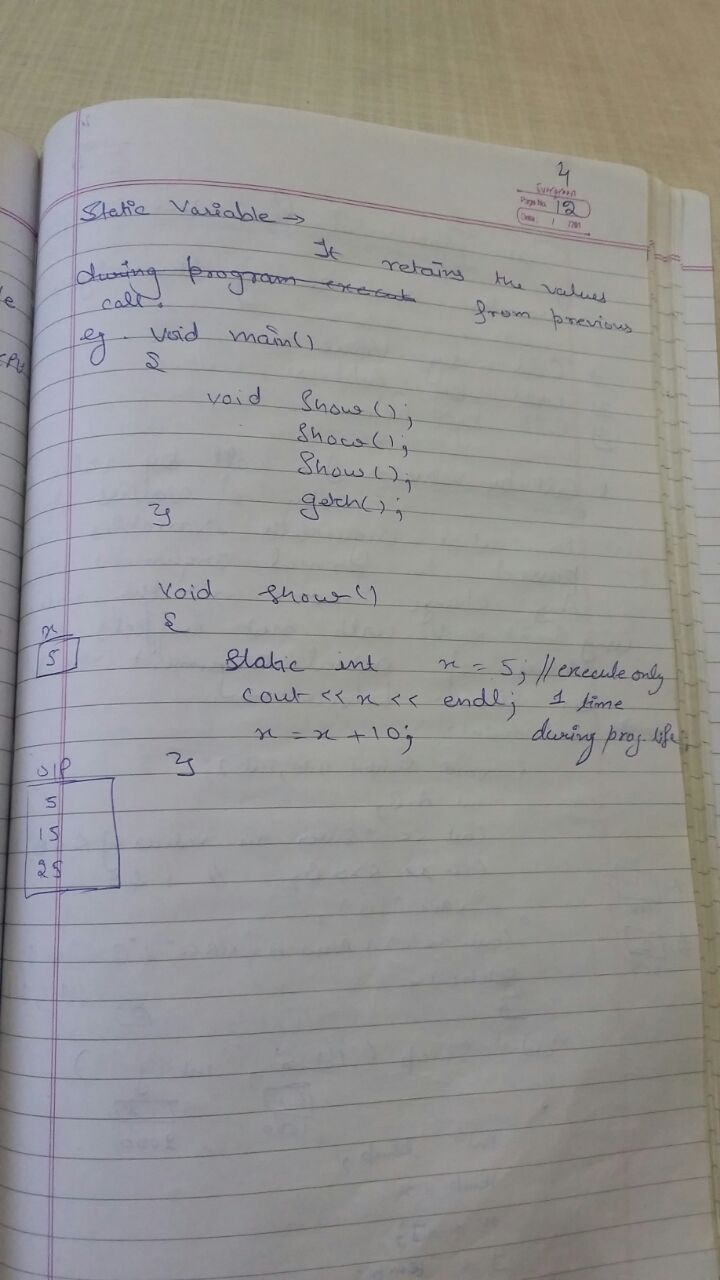 4
Evergreen
Page No. 12
Date: / /201
Static Variable →
It retains the values
during program execut from previous
call.
eg. void main()
{
void show();
show();
show();
getch();
}
void show()
{
x
5
static int x = 5; // execute only
cout << x << endl; 1 time
x = x + 10; during prog. life;
}
O/P
5
15
25